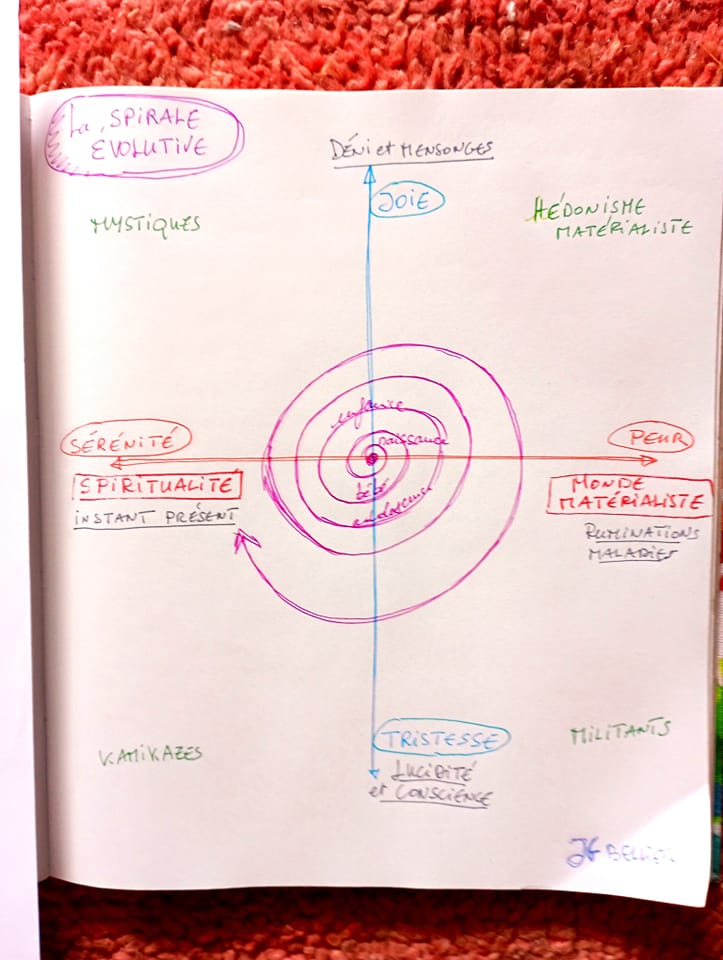 La SPIRALE
EVOLUTIVE
DÉNI et MENSONGES
JOIE
MYSTIQUES
HÉDONISME
MATÉRIALISTE
enfance
naissance
SÉRÉNITÉ
PEUR
SPIRITUALITÉ
MONDE
MATÉRIALISTE
INSTANT PRÉSENT
bébé
adolescence
RUMINATIONS
MALADIES
KAMIKAZES
TRISTESSE
MILITANTS
LUCIDITÉ
et CONSCIENCE